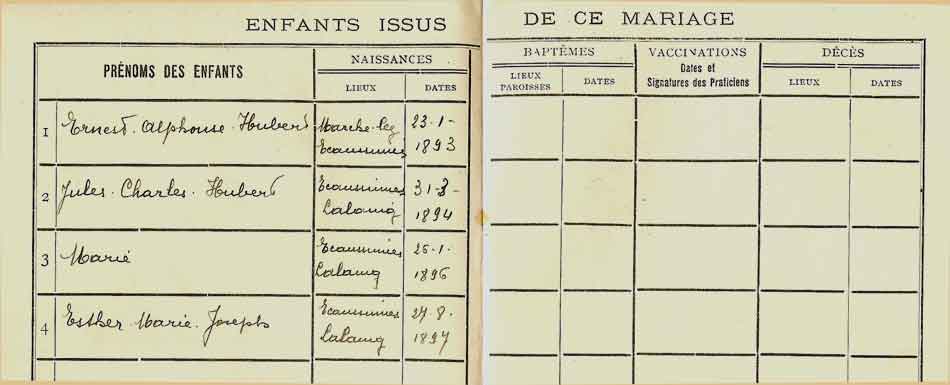 ENFANTS ISSUS DE CE MARIAGE
PRÉNOMS DES ENFANTS
NAISSANCES
LIEUX
DATES
BAPTÊMES
LIEUX
PAROISSES
DATES
VACCINATIONS
Dates et
Signatures des Praticiens
DÉCÈS
LIEUX
DATES
1 Ernest. Alphonse. Hubert Marche-lez 23-1-
Ecaussinnes 1893
2 Jules. Charles. Hubert Ecaussinnes 31-3-
Lalaing 1894
3 Marie Ecaussinnes 25.1.
Lalaing 1896
4 Esther. Marie. Joseph Ecaussinnes 27.8.
Lalaing 1897